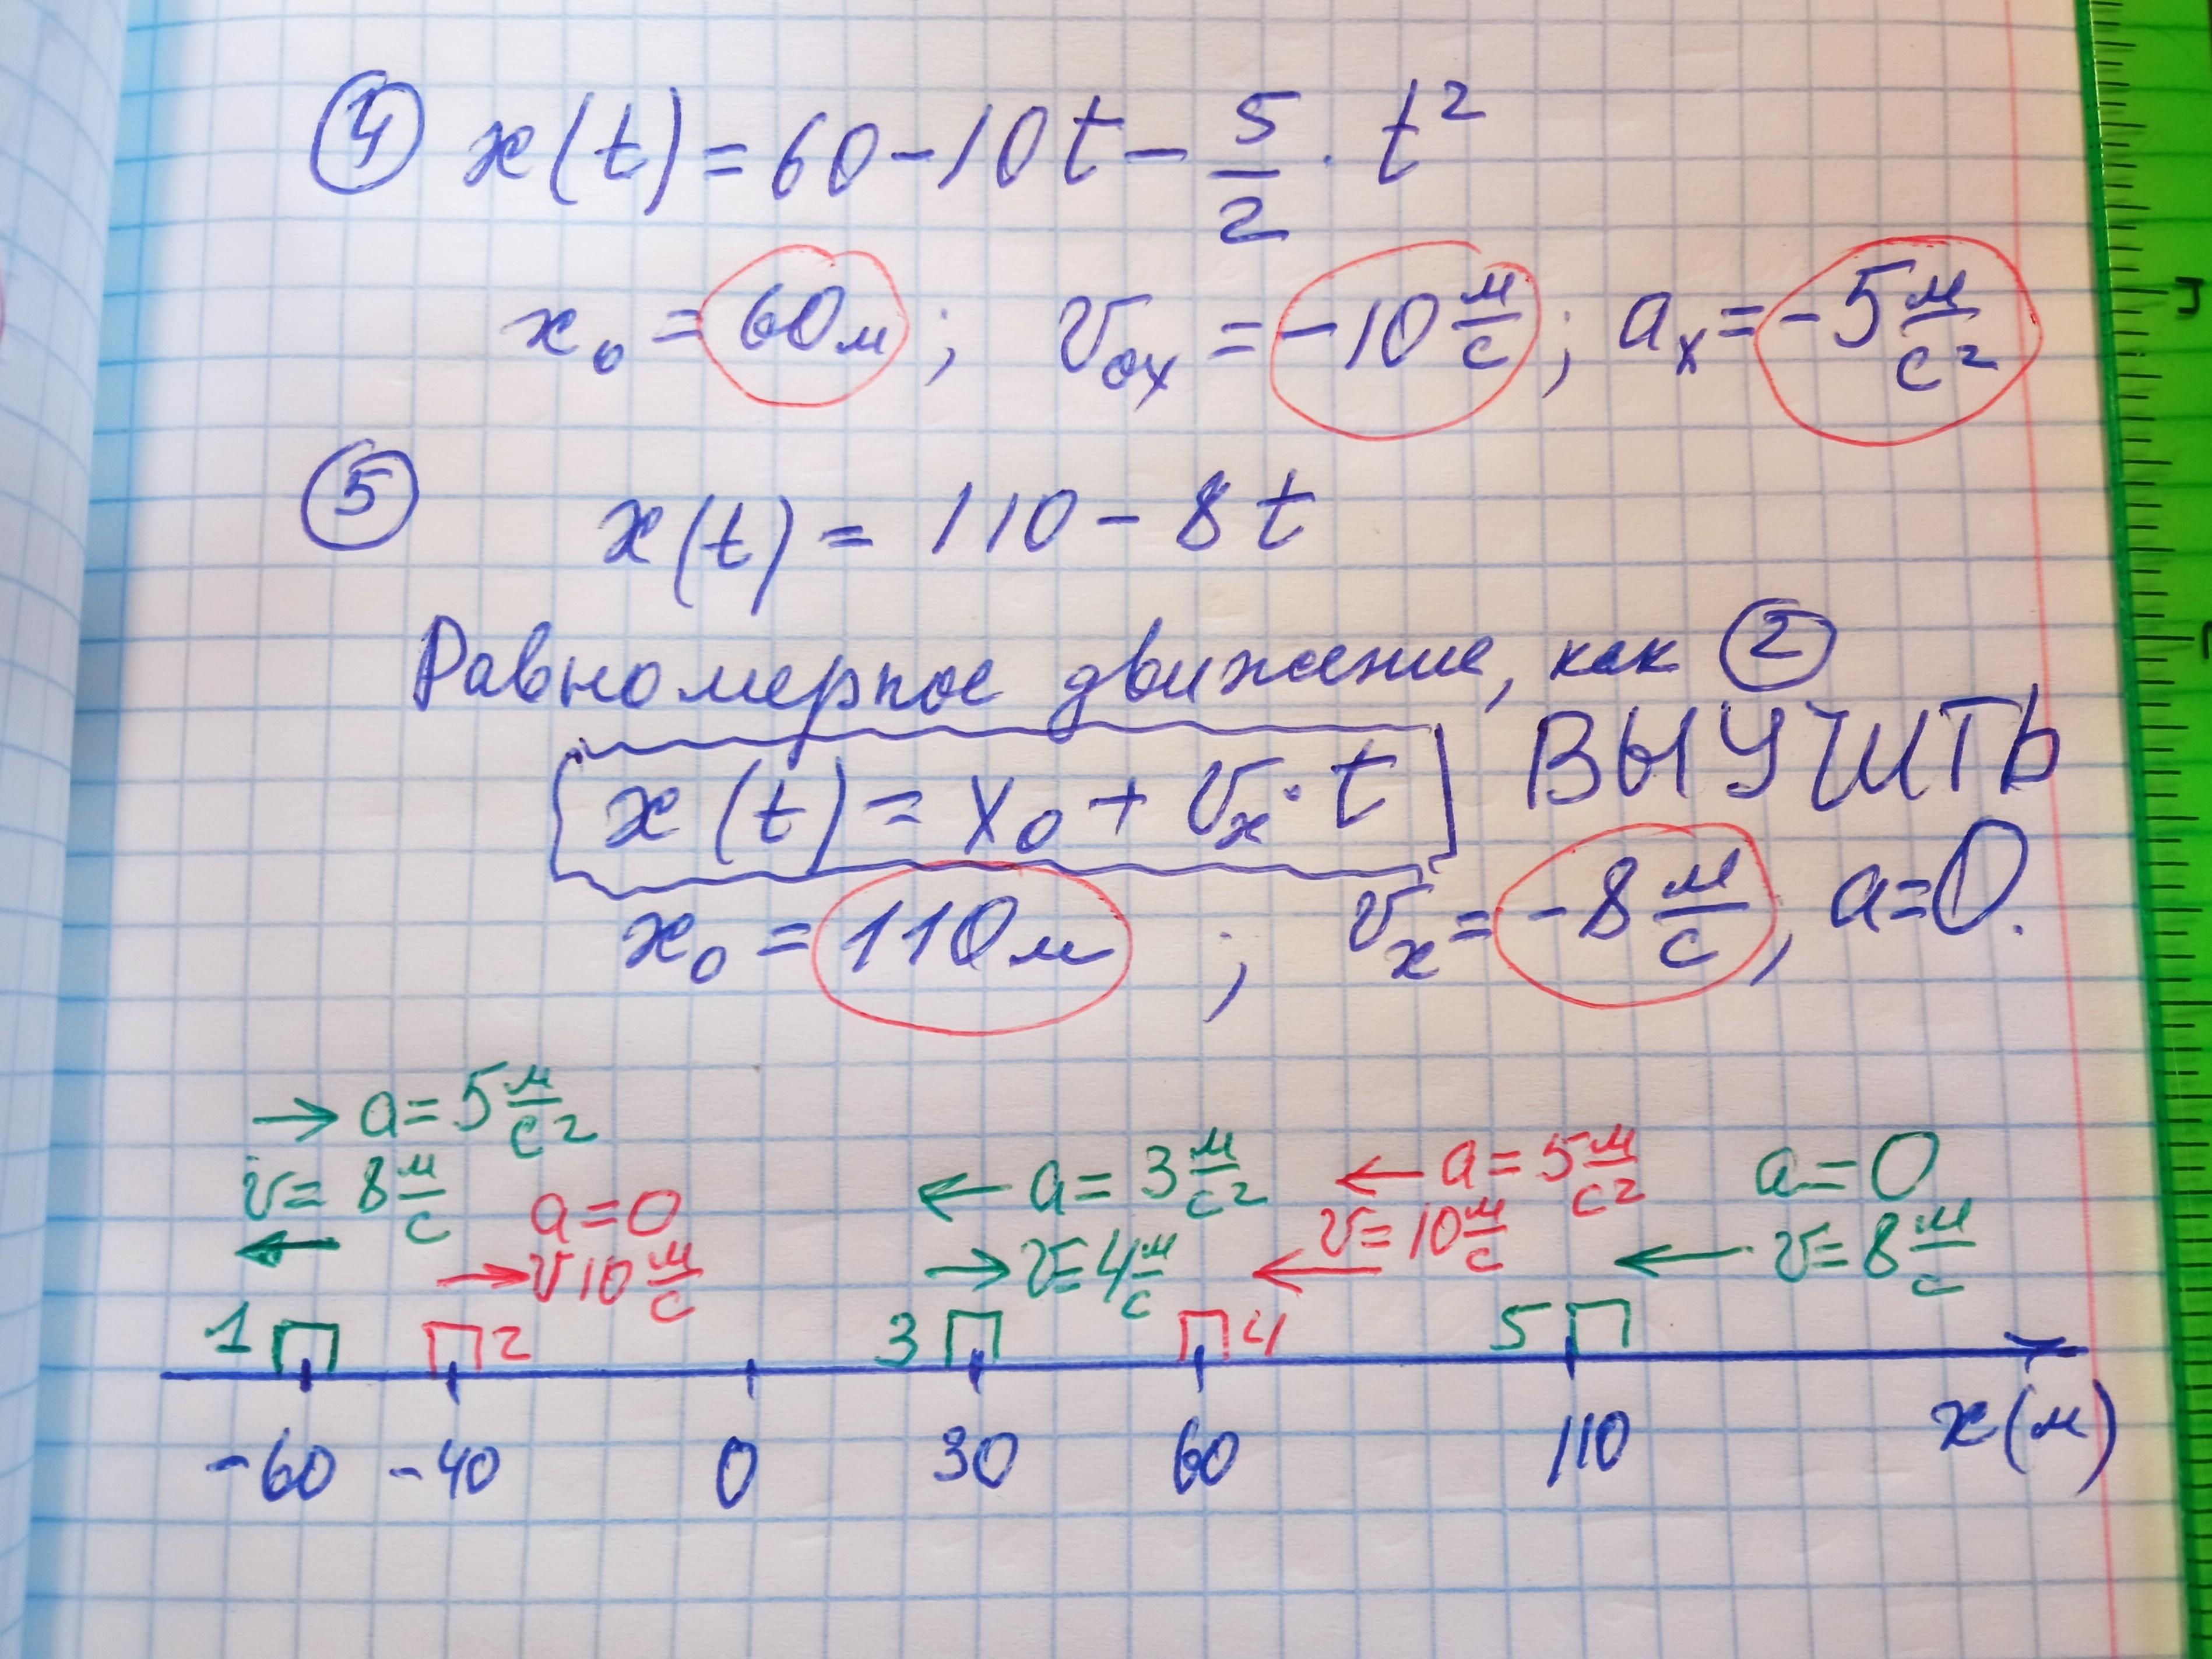 ④ x(t) = 60 - 10t - 5/2 · t²
x₀ = 60м ; v₀ₓ = -10 м/с ; aₓ = -5 м/с²
⑤ x(t) = 110 - 8t
Равномерное движение, как ②
x(t) = x₀ + vₓ · t ВЫУЧИТЬ
x₀ = 110м ; vₓ = -8 м/с, a=0.
→ a = 5 м/с²
v = 8 м/с
←
a = 0
→ v 10 м/с
← a = 3 м/с²
→ v = 4 м/с
← a = 5 м/с²
v = 10 м/с
←
a = 0
← v = 8 м/с
1 2 3 4 5
-60 -40 0 30 60 110 x(м)